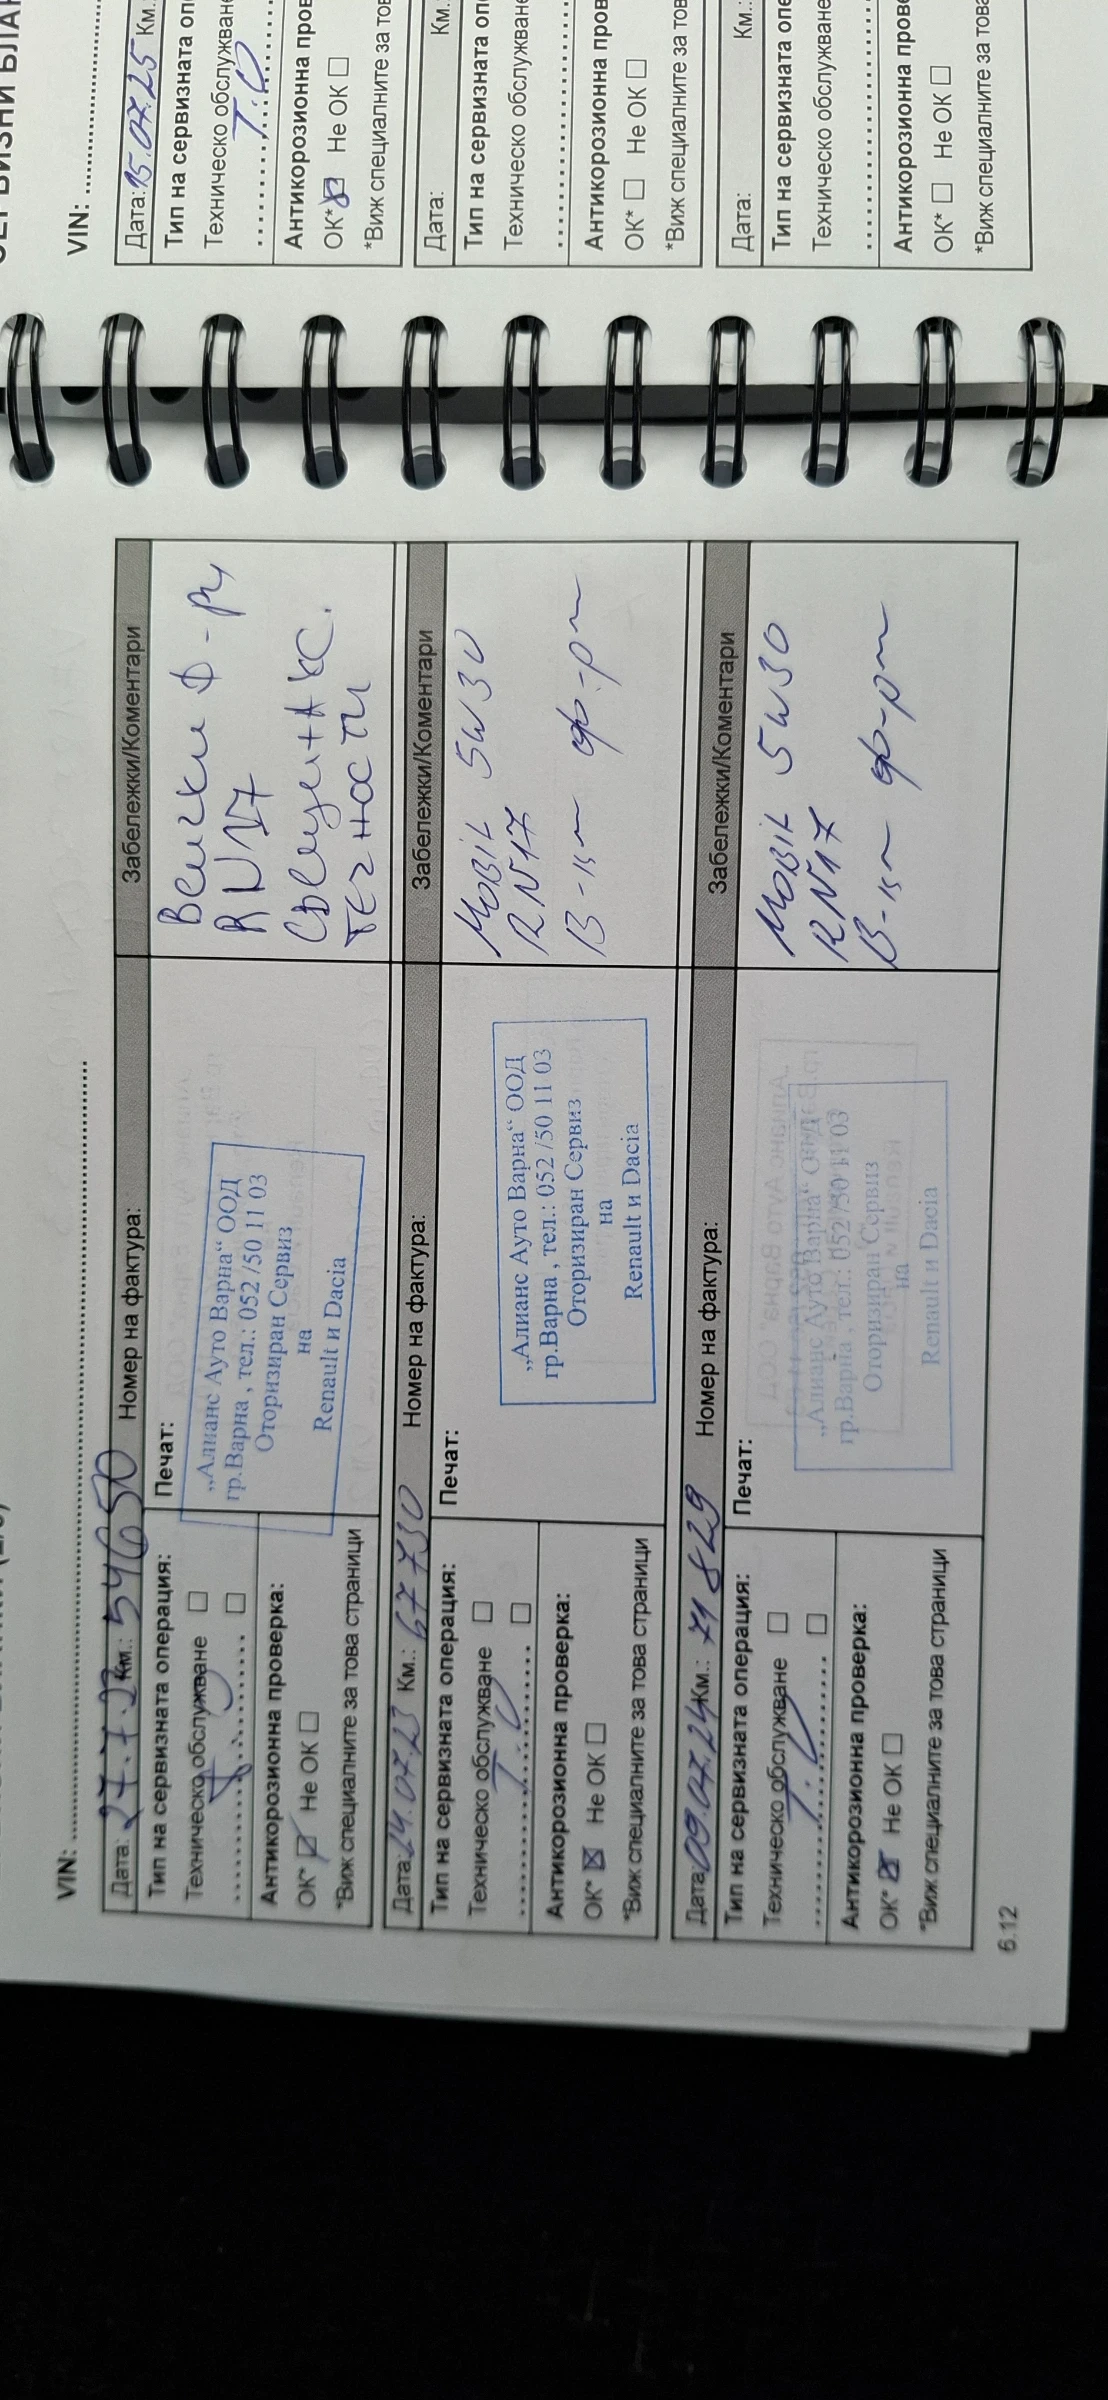 VIN:
Дата: 27.7.22 Км.: 54650 Номер на фактура: Забележки/Коментари
Тип на сервизната операция:
Техническо обслужване ☐
Антикорозионна проверка:
ОК* ☑ Не ОК ☐
*Виж специалните за това страници
Печат:
„Алианс Ауто Варна“ ООД
гр.Варна , тел.: 052 /50 11 03
Оторизиран Сервиз
на
Renault и Dacia
Всички ф-ри
RN17
свещи + к-с.
течности
Дата: 24.07.23 Км.: 67730 Номер на фактура: Забележки/Коментари
Тип на сервизната операция:
Техническо обслужване ☐
Т.О
Антикорозионна проверка:
ОК* ☒ Не ОК ☐
*Виж специалните за това страници
Печат:
„Алианс Ауто Варна“ ООД
гр.Варна , тел.: 052 /50 11 03
Оторизиран Сервиз
на
Renault и Dacia
Мobil 5w30
RN17
В-ки ф-ри
Дата: 09.07.24 Км.: 71829 Номер на фактура: Забележки/Коментари
Тип на сервизната операция:
Техническо обслужване ☐
Т.О
Антикорозионна проверка:
ОК* ☒ Не ОК ☐
*Виж специалните за това страници
Печат:
„Алианс Ауто Варна“ ООД
гр.Варна , тел.: 052 /50 11 03
Оторизиран Сервиз
на
Renault и Dacia
Мobil 5w30
RN17
В-ки ф-ри
6.12
VIN:
Дата: 15.07.25 Км.
Тип на сервизната
Техническо обслужване
Т.О
Антикорозионна
ОК* ☒ Не ОК ☐
*Виж специалните за
Дата: Км.:
Тип на сервизната
Техническо обслужване
Антикорозионна
ОК* ☐ Не ОК ☐
*Виж специалните за
Дата: Км.:
Тип на сервизната
Техническо обслужване
Антикорозионна
ОК* ☐ Не ОК ☐
*Виж специалните за това